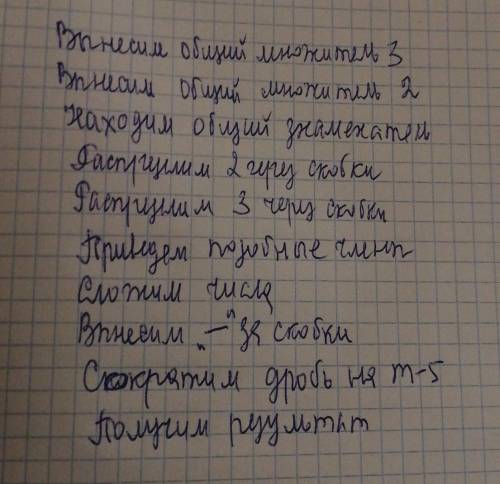 Вынесим общий множитель 3
Внесим общий множитель 2
Находим общий знаменатель
Распрүелим 2 через скобки
Распрүелим 3 через скобки
Приведем подобные члены
Сложим числа
Внесим "—" за скобки
Сократим дробь на m-5
Получим результат